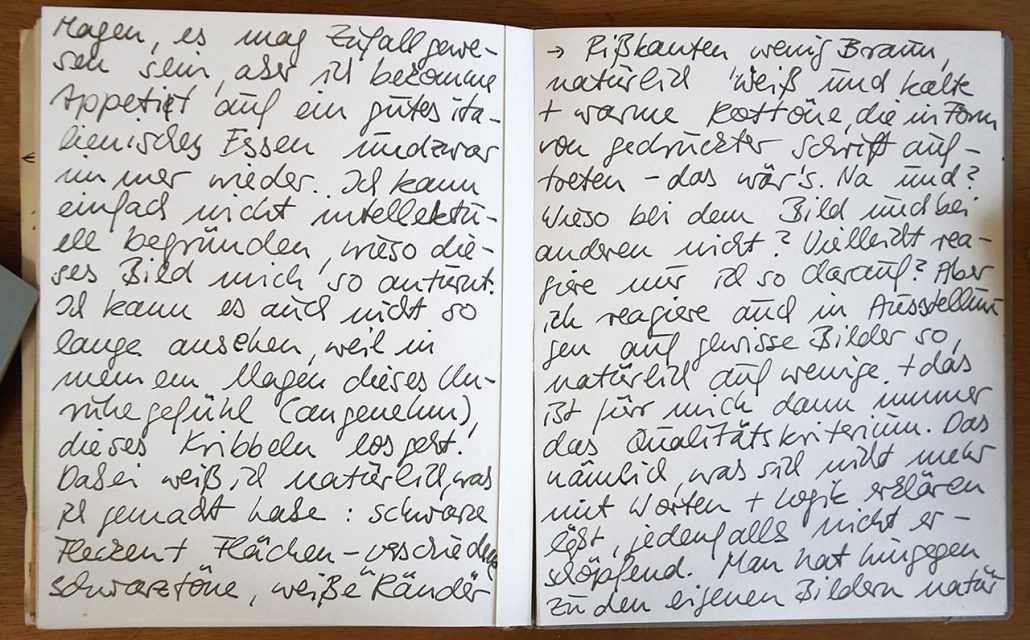 Magen, es mag Zufall gewe-
sen sein, aber ich bekomme
Appetit auf ein gutes ita-
lienisches Essen und zwar
immer wieder. Ich kann
einfach nicht intellektu-
ell begründen, wieso die-
ses Bild mich so anturnt.
Ich kann es auch nicht so
lange ansehen, weil in
meinem Magen dieses Un-
ruhegefühl (angenehm),
dieses Kribbeln losgeht.
Dabei weiß ich natürlich, was
ich gemacht habe: schwarze
Flecken + Flächen – verschiedene
schwarztöne, weiße Ränder
→ Rißkanten wenig Braun,
natürlich weiß und kalte
+ warme Rottöne, die in Form
von gedruckter Schrift auf-
treten – das wär's. Na und?
Wieso bei dem Bild und bei
anderen nicht? Vielleicht rea-
giere nur ich so darauf? Aber
ich reagiere auch in Ausstellun
gen auf gewisse Bilder so,
natürlich auf wenige. + das
ist für mich dann immer
das Qualitätskriterium. Das
nämlich, was sich nicht mehr
mit Worten + Logik erklären
läßt, jedenfalls nicht er-
schöpfend. Man hat hingegen
zu den eigenen Bildern natür